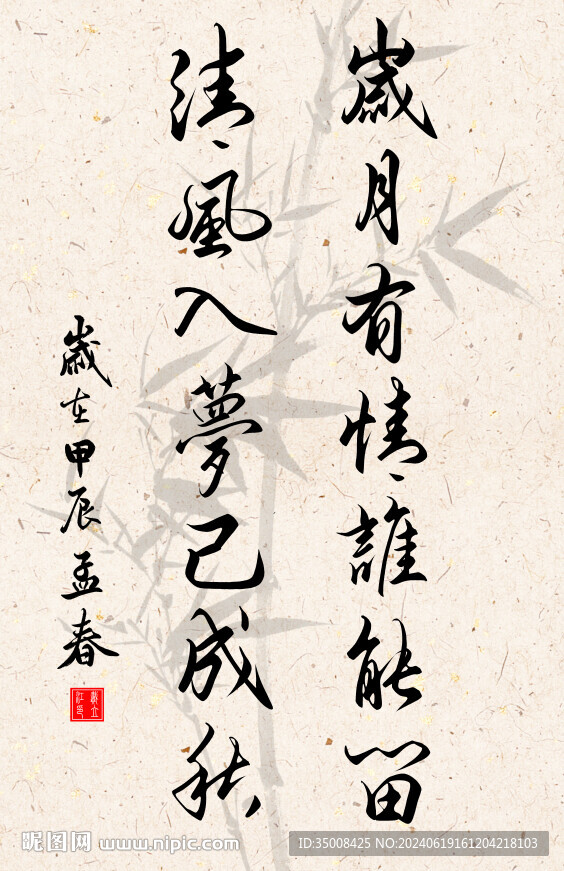 歲月有情誰能留
清風入夢已成秋
歲在甲辰孟春
昵图网 www.nipic.com
ID:35008425 NO:20240619161204218103